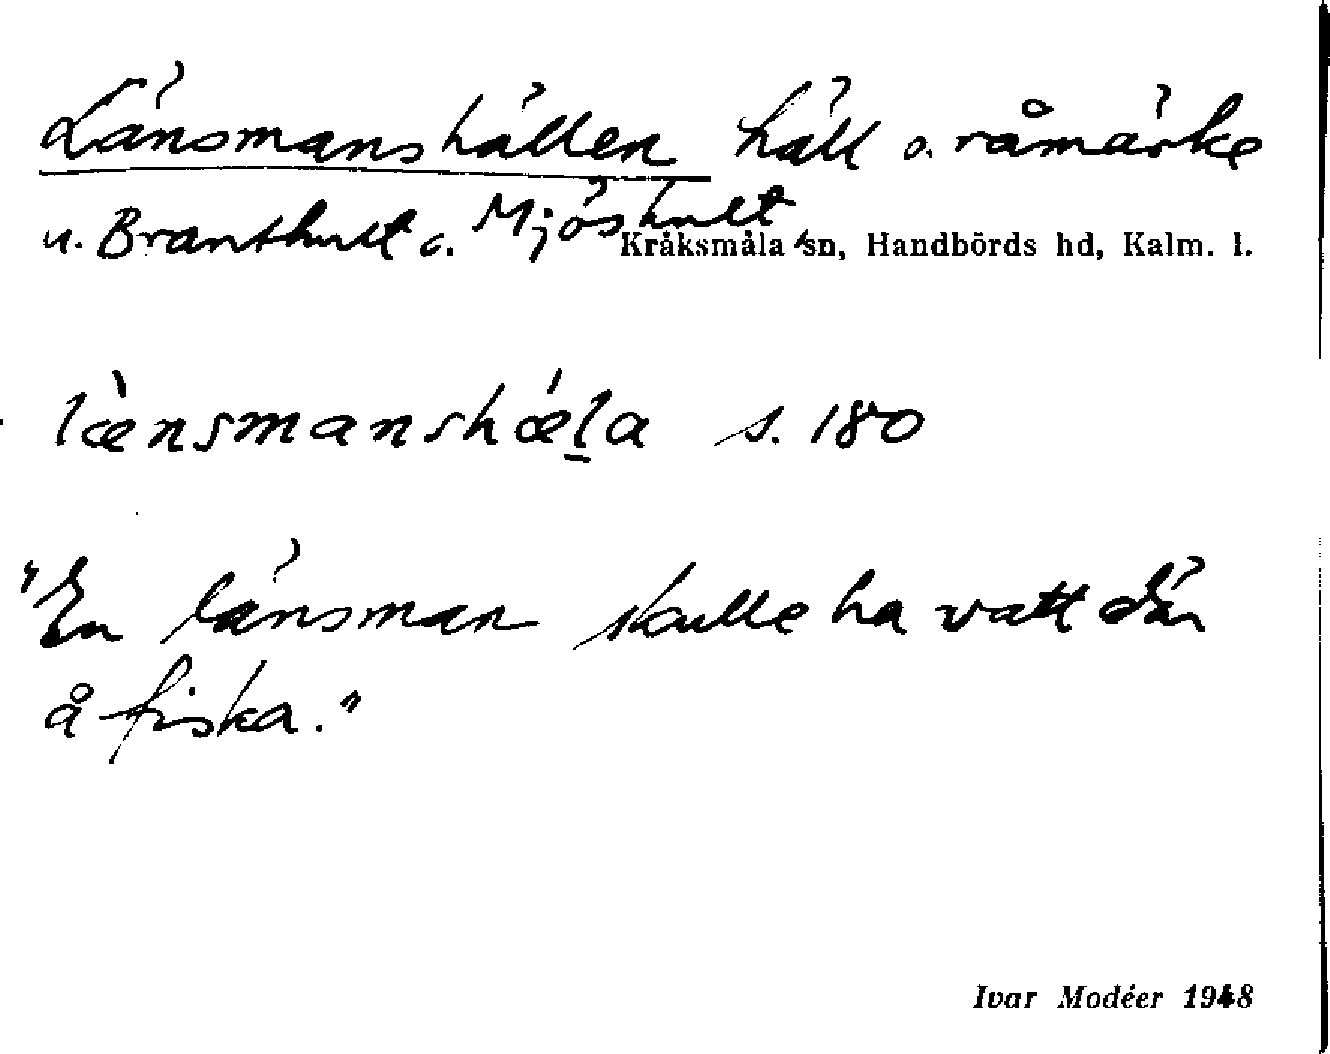 Länsmanshällen häll o. råmärke
u. Branthult o. Mjöshult
Kråksmåla sn, Handbörds hd, Kalm. l.
lænsmanshæla s. 180
"En länsman skulle ha vatt där
å fiska."
Ivar Modéer 1948